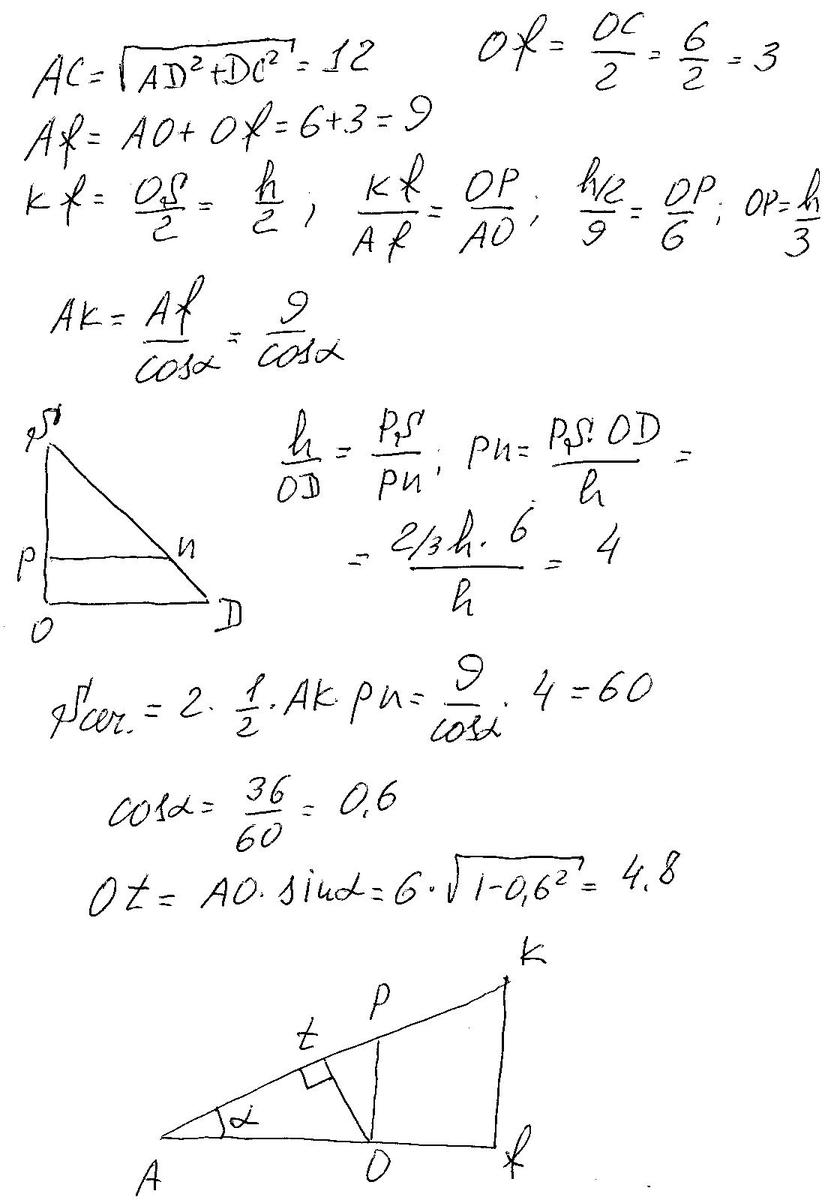 AC = √(AD² + DC²) = 12     Of = OC/2 = 6/2 = 3
Af = AO + Of = 6 + 3 = 9
Kf = OS/2 = h/2 ; Kf/Af = OP/AO ; h/2/9 = OP/6 ; OP = h/3
AK = Af/cosα = 9/cosα
S
P n
O D
h/OD = PS/Pn ; Pn = PS·OD/h =
= 2/3h · 6/h = 4
Sсеч. = 2 · 1/2 · AK · Pn = 9/cosα · 4 = 60
cosα = 36/60 = 0,6
Ot = AO · sinα = 6 · √(1-0,6²) = 4.8
K
P
t
α
A O f